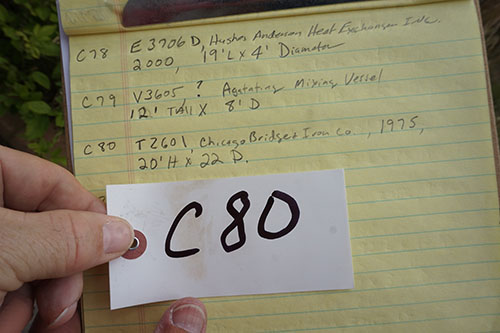 C78 E3706D, Hughes Anderson Heat Exchanger INC.
2000, 19'L X 4' Diameter
C79 V3605, ? Agatating Mixing Vessel
12' Tall X 8' D
C80 T2601, Chicago Bridge & Iron Co., 1975,
20'H X 22 D.
C80